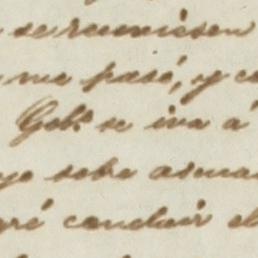 se reuniesen
me pasé, y co
Gobo. se iva á
yo sobre asuma
ré concluir el